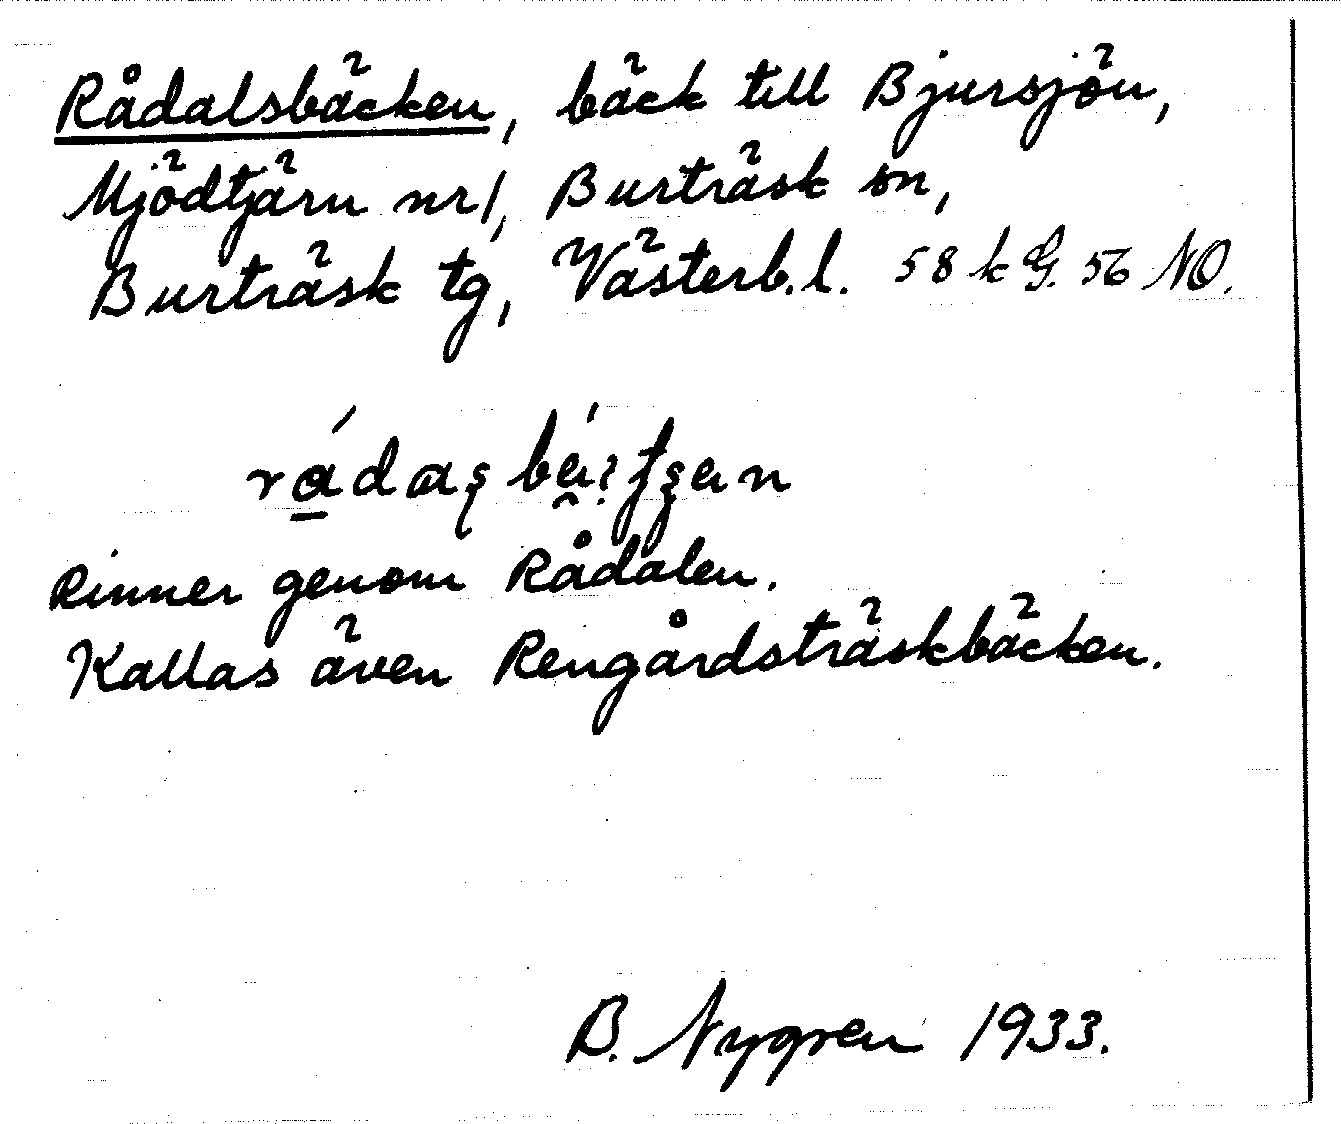 Rådalsbäcken, bäck till Bjursjön,
Mjödtjärn nr 1, Burträsk sn,
Burträsk tg, Västerb.l. 58 k G. 56 NO.
Rinner genom Rådalen.
Kallas även Rengårdsträskbäcken.
B. Nygren 1933.